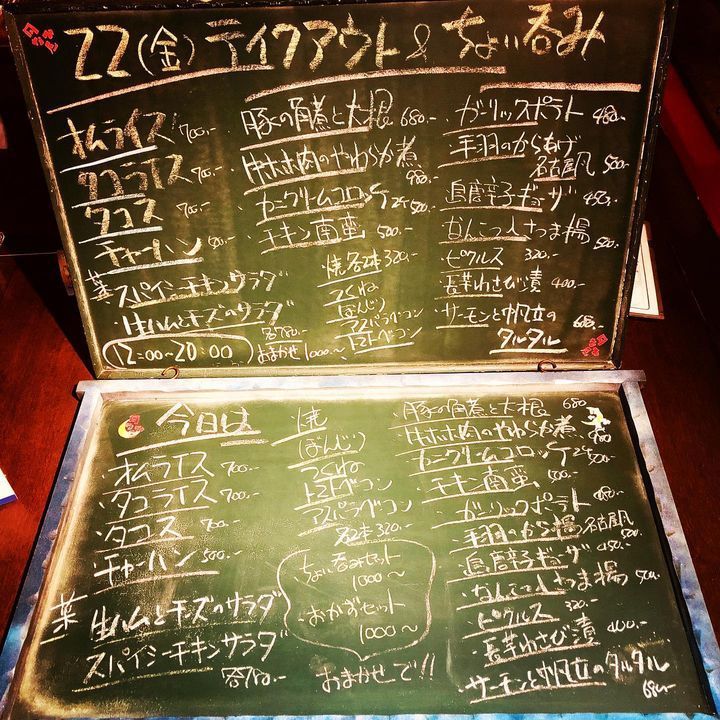 22(金) テイクアウト & ちょい呑み
オムライス 700.-
タコライス 700.-
タコス 700.-
チャーハン 500.-
菜 スパイシーチキンサラダ
生ハムとチーズのサラダ
各780.-
12:00~20:00
おまかせ 1000~
豚の角煮と大根 680.-
牛ホホ肉のやわらか煮 980.-
カニクリームコロッケ 2ケ 500.-
チキン南蛮 500.-
焼 各2本 320.-
つくね
ぼんじり
アスパラベーコン
トマトベーコン
ガーリックポテト 480.-
手羽のからあげ
名古屋風 500.-
島唐辛子ギョーザ 450.-
なんこつ入さつま揚 500.-
ピクルス 320.-
長芋わさび漬 400.-
サーモンと帆立の
タルタル 680.-
今日は
・オムライス 700.-
・タコライス 700.-
・タコス 700.-
・チャーハン 500.-
菜 生ハムとチーズのサラダ
スパイシーチキンサラダ
各780.-
焼
ぼんじり
つくね
トマトベーコン
アスパラベーコン
各2本 320.-
ちょい呑みセット
1000~
おかずセット
1000~
おまかせで!!
・豚の角煮と大根 680
・牛ホホ肉のやわらか煮 980
・カニクリームコロッケ 2ケ 500.-
・チキン南蛮 500.-
・ガーリックポテト 480.-
・手羽のから揚 名古屋風 500.-
・島唐辛子ギョーザ 450.-
・なんこつ入さつま揚 500.-
・ピクルス 320.-
・長芋わさび漬 400.-
・サーモンと帆立のタルタル
680.-